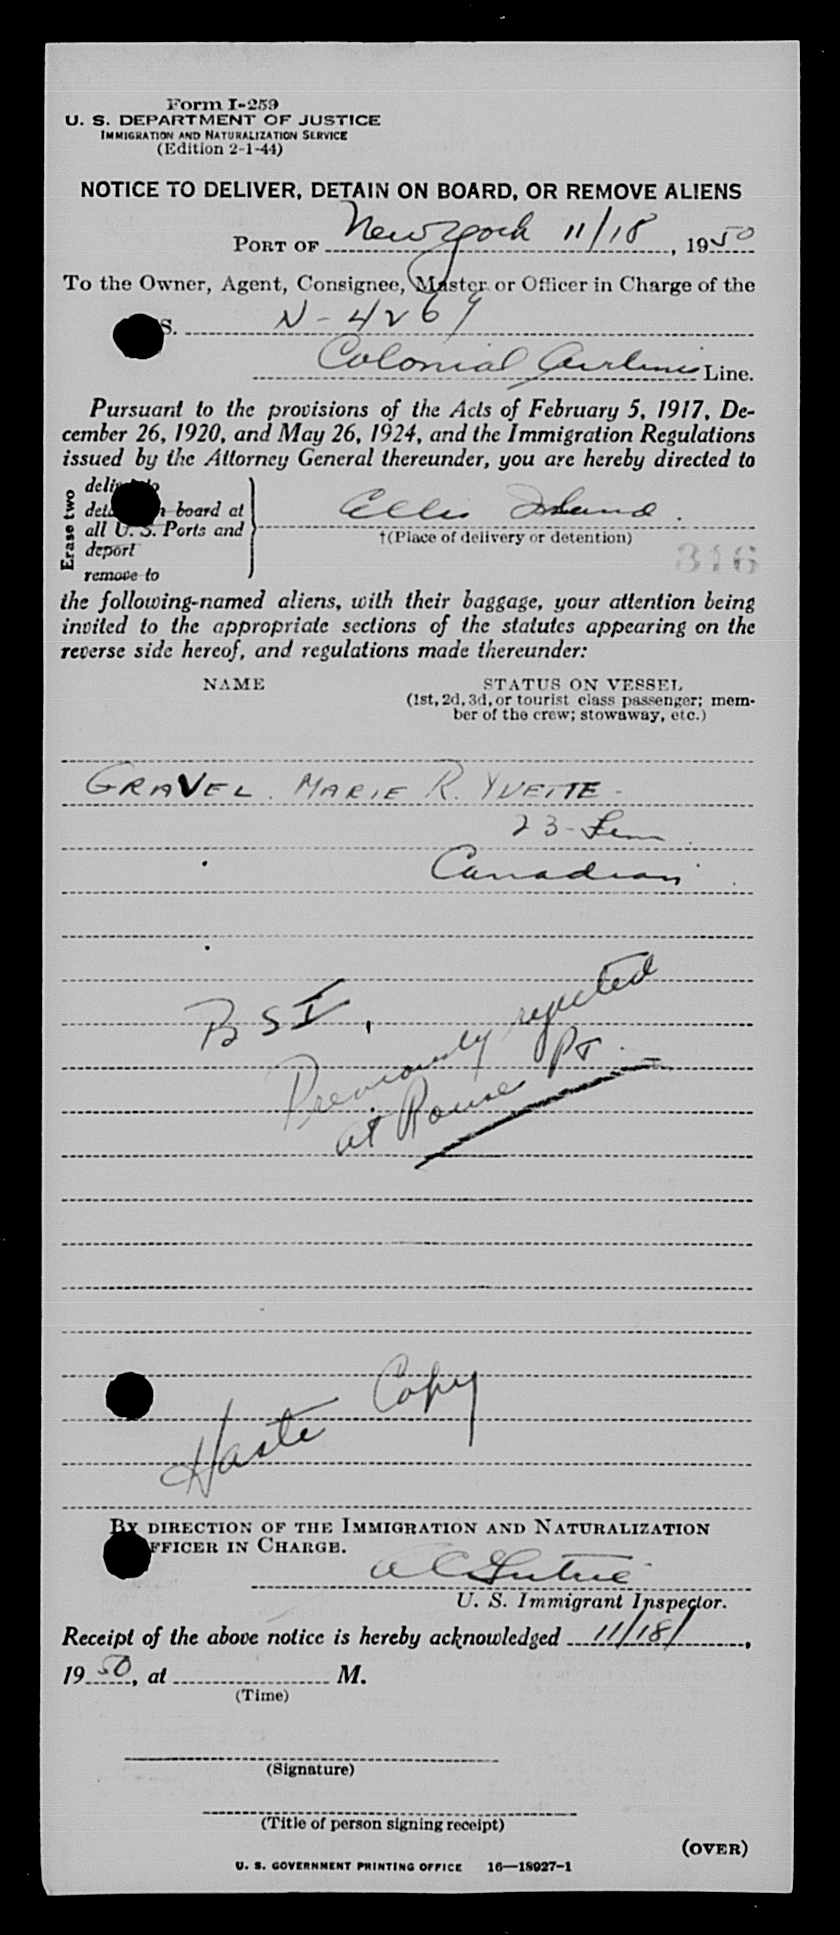 Form I-259
U. S. DEPARTMENT OF JUSTICE
IMMIGRATION AND NATURALIZATION SERVICE
(Edition 2-1-44)
NOTICE TO DELIVER, DETAIN ON BOARD, OR REMOVE ALIENS
PORT OF New York 11/18, 1950
To the Owner, Agent, Consignee, Master or Officer in Charge of the
S. N-4269
Colonial Airlines Line.
Pursuant to the provisions of the Acts of February 5, 1917, De-
cember 26, 1920, and May 26, 1924, and the Immigration Regulations
issued by the Attorney General thereunder, you are hereby directed to
Erase two
board at
all U. S. Ports and
deport
remove to
Ellis Island.
†(Place of delivery or detention)
316
the following-named aliens, with their baggage, your attention being
invited to the appropriate sections of the statutes appearing on the
reverse side hereof, and regulations made thereunder:
NAME STATUS ON VESSEL
(1st, 2d, 3d, or tourist class passenger; mem-
ber of the crew; stowaway, etc.)
GRAVEL. MARIE R. YVETTE-
23-Fem
Canadian
BSI,
Previously rejected
at Rouses Pt.
Haste Copy
BY DIRECTION OF THE IMMIGRATION AND NATURALIZATION
OFFICER IN CHARGE.
U. S. Immigrant Inspector.
Receipt of the above notice is hereby acknowledged 11/18/,
1950, at M.
(Time)
(Signature)
(Title of person signing receipt)
(OVER)
U. S. GOVERNMENT PRINTING OFFICE 16—18927-1